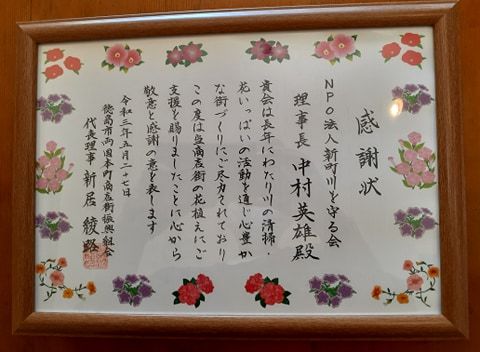 感謝状
NPO法人新町川を守る会
理事長 中村英雄殿
貴会は長年にわたり川の清掃・
花いっぱいの活動を通じ心豊か
な街づくりにご尽力されており
この度は当商店街の花植えにご
支援を賜りましたことに心から
敬意と感謝の意を表します
令和三年五月二十七日
徳島市両国本町商店街振興組合
代表理事 新居 綾